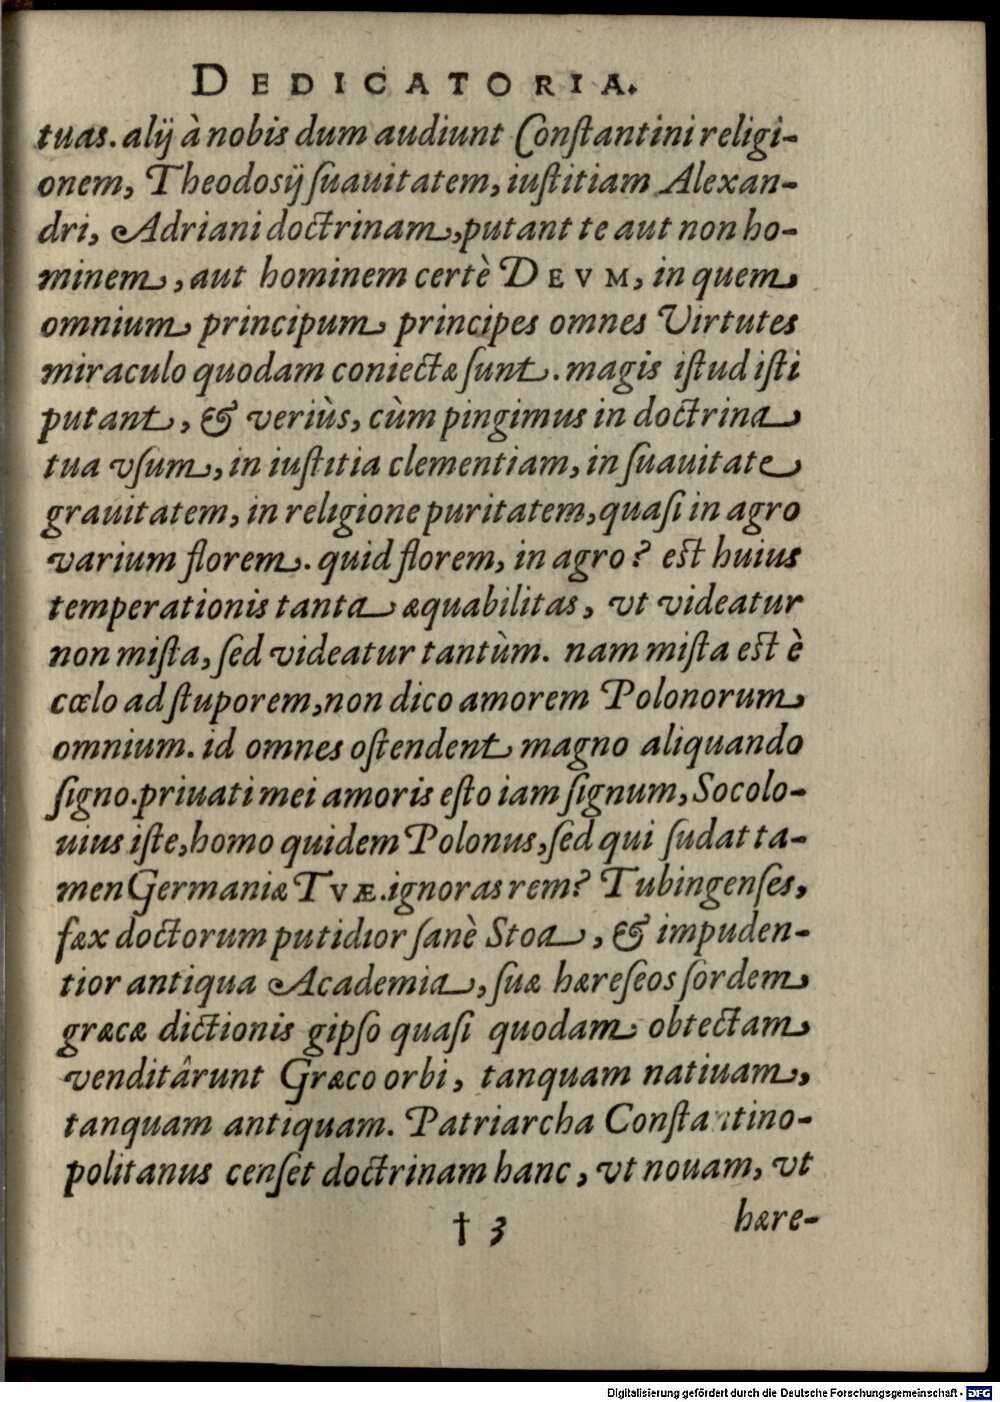 DEDICATORIA.
tuas. alij à nobis dum audiunt Conſtantini religi-
onem, Theodosij ſuauitatem, iuſtitiam Alexan-
dri, Adriani doctrinam, putant te aut non ho-
minem, aut hominem certè DEVM, in quem
omnium principum principes omnes Virtutes
miraculo quodam coniectæ ſunt. magis iſtud iſti
putant, & veriùs, cùm pingimus in doctrina
tua vſum, in iuſtitia clementiam, in ſuauitate
grauitatem, in religione puritatem, quaſi in agro
varium florem. quid florem, in agro? eſt huius
temperationis tanta æquabilitas, vt videatur
non miſta, ſed videatur tantùm. nam miſta eſt è
cœlo ad ſtuporem, non dico amorem Polonorum
omnium. id omnes oſtendent magno aliquando
ſigno. priuati mei amoris eſto iam ſignum, Socolo-
uius iſte, homo quidem Polonus, ſed qui ſudat ta-
men Germaniæ TVÆ. ignoras rem? Tubingenſes,
fæx doctorum putidior ſanè Stoa, & impuden-
tior antiqua Academia, ſuæ hæreſeos ſordem
græcæ dictionis gipſo quaſi quodam obtectam
venditârunt Græco orbi, tanquam natiuam,
tanquam antiquam. Patriarcha Conſtantino-
politanus cenſet doctrinam hanc, vt nouam, vt
† 3
hære-
Digitalisierung gefördert durch die Deutsche Forschungsgemeinschaft - DFG